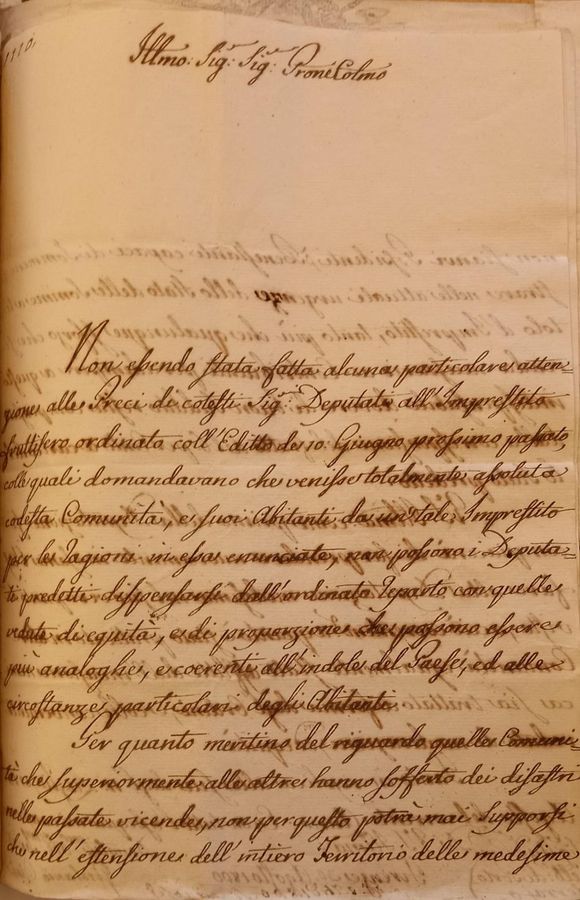 Illmo: Sig:r Sig:r Prone Colmo
Non essendo stata fatta alcuna particolare atten=
zione alle Preci di cotesti Sig:i Deputati all'Imprestito
fruttifero ordinato coll'Editto de 10: Giugno prossimo passato,
colle quali domandavano che venisse totalmente assoluta
codesta Comunità, e suoi Abitanti da un tale Imprestito
per le ragioni in esse enunciate, non possono i Deputa=
ti predetti dispensarsi dall'ordinato reparto con quelle
vedute di equità, e di proporzione che possono essere
più analoghe, e coerenti all'indole del Paese, ed alle
circostanze particolari degli Abitanti.
Per quanto meritino del riguardo quelle Comuni=
tà che superiormente alle altre hanno sofferto dei disastri
nelle passate vicende, non per questo potrà mai supporsi
che nell'estensione dell'intiero Territorio delle medesime